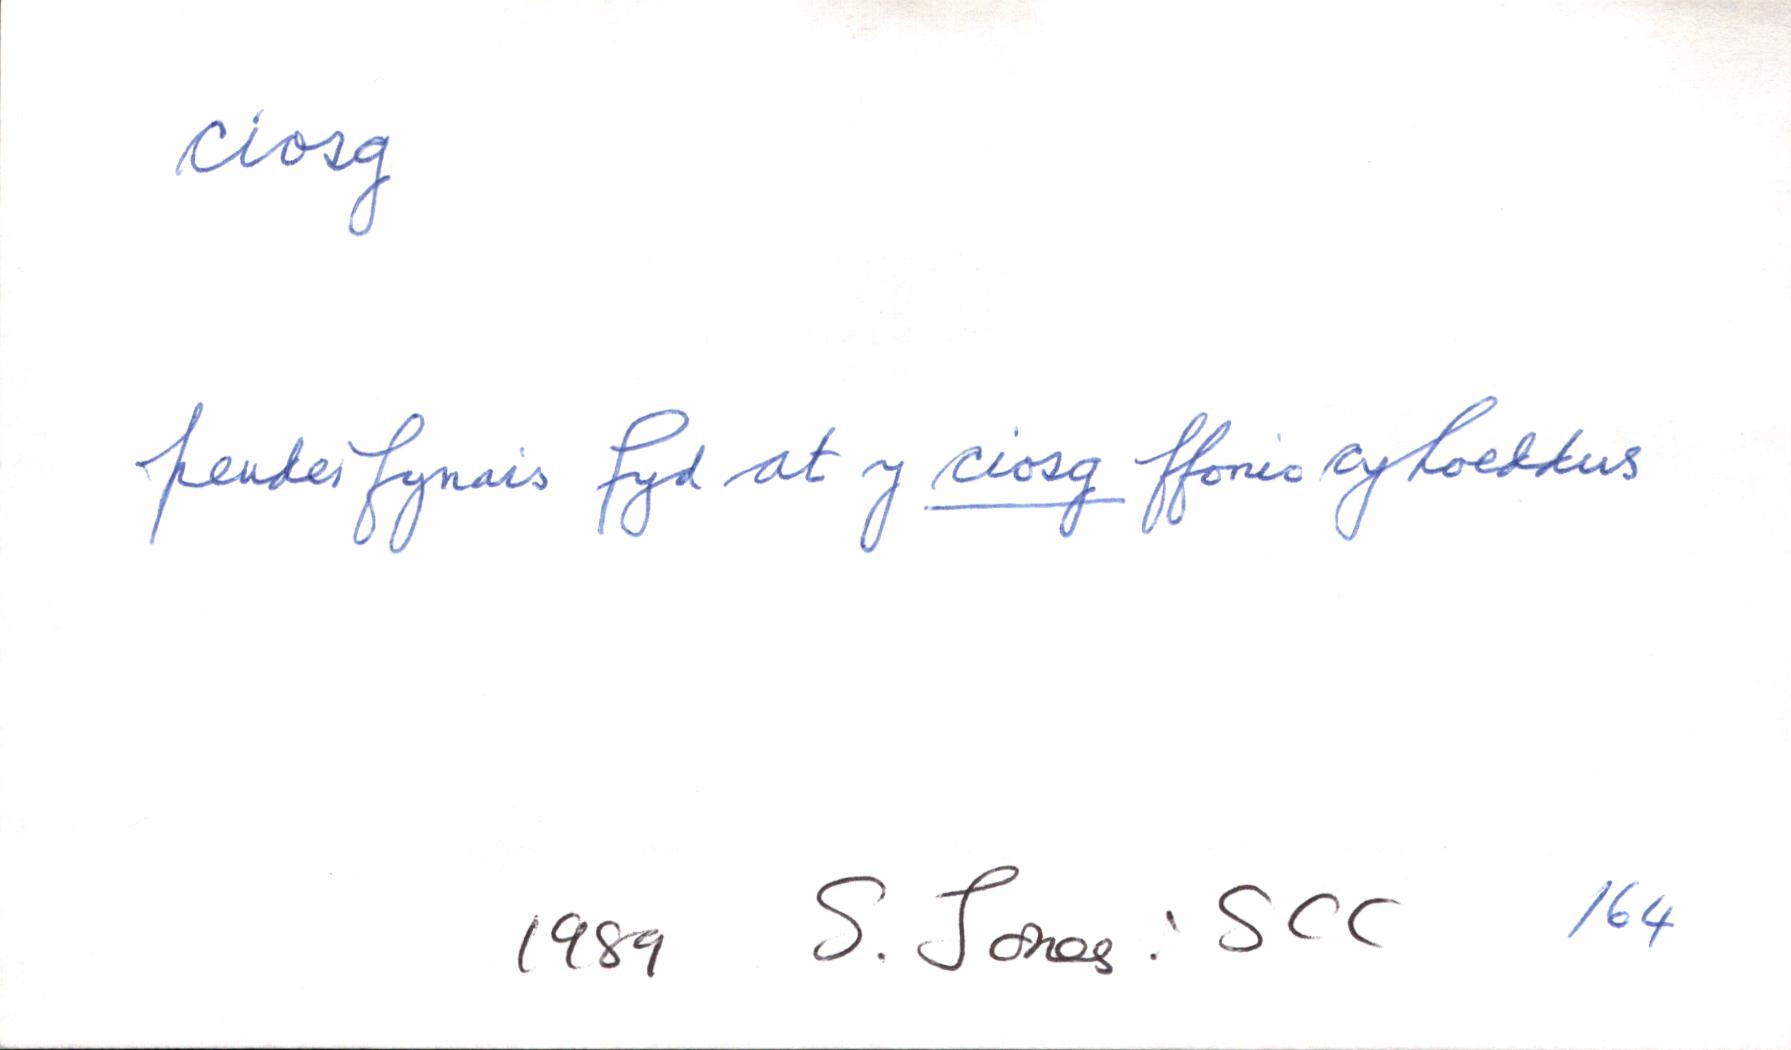 ciosg
penderfynais fynd at y ciosg ffonio cyhoeddus
1989 S. Jones: SCC 164